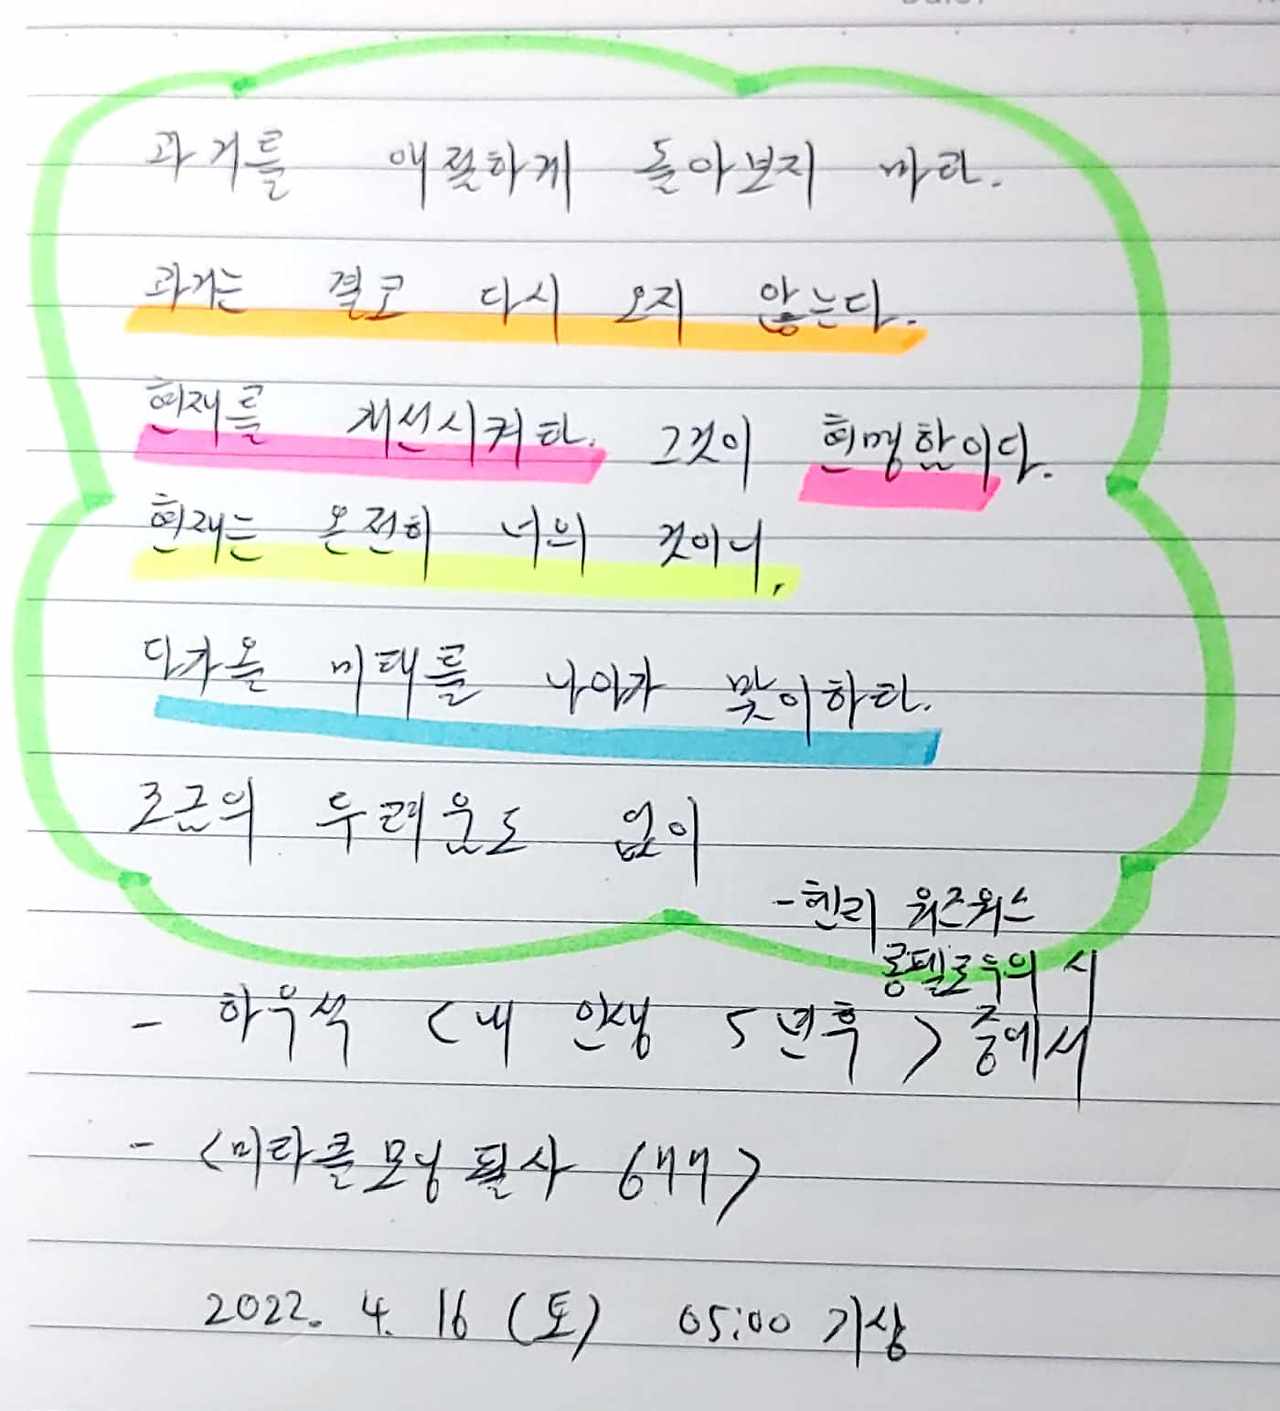 과거를 애절하게 돌아보지 마라.
과거는 결코 다시 오지 않는다.
현재를 개선시켜라. 그것이 현명함이다.
현재는 온전히 너의 것이니,
다가올 미래를 나아가 맞이하라.
조금의 두려움도 없이
-헨리 워즈워스
롱펠로우의 시
- 하우석 <내 인생 5년후> 중에서
- <미라클모닝 필사 677>
2022. 4. 16 (토) 05:00 기상